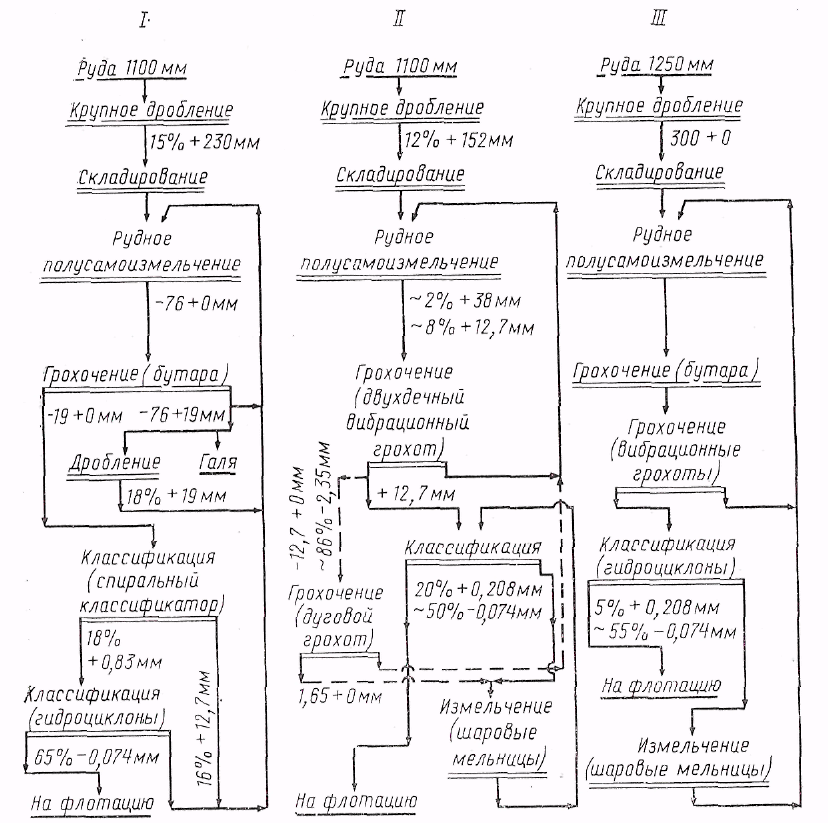 I.
Руда 1100 мм
Крупное дробление
15% + 230 мм
Складирование
Рудное
полусамоизмельчение
-76 + 0 мм
Грохочение (бутара)
-19 + 0 мм
-76 + 19 мм
Дробление
Галя
18% + 19 мм
Классификация
(спиральный
классификатор)
18%
+ 0,83 мм
16% + 12,7 мм
Классификация
(гидроциклоны)
65% - 0,074 мм
На флотацию
II
Руда 1100 мм
Крупное дробление
12% + 152 мм
Складирование
Рудное
полусамоизмельчение
~ 2% + 38 мм
~ 8% + 12,7 мм
Грохочение
(двухдечный
вибрационный
грохот)
-12,7 + 0 мм
~ 86% - 2,35 мм
+ 12,7 мм
Классификация
20% + 0,208 мм
~ 50% - 0,074 мм
Грохочение
(дуговой
грохот)
1,65 + 0 мм
Измельчение
(шаровые
мельницы)
На флотацию
III
Руда 1250 мм
Крупное дробление
300 + 0
Складирование
Рудное
полусамоизмельчение
Грохочение (бутара)
Грохочение
(вибрационные
грохоты)
Классификация
(гидроциклоны)
5% + 0,208 мм
~ 55% - 0,074 мм
На флотацию
Измельчение
(шаровые мельницы)